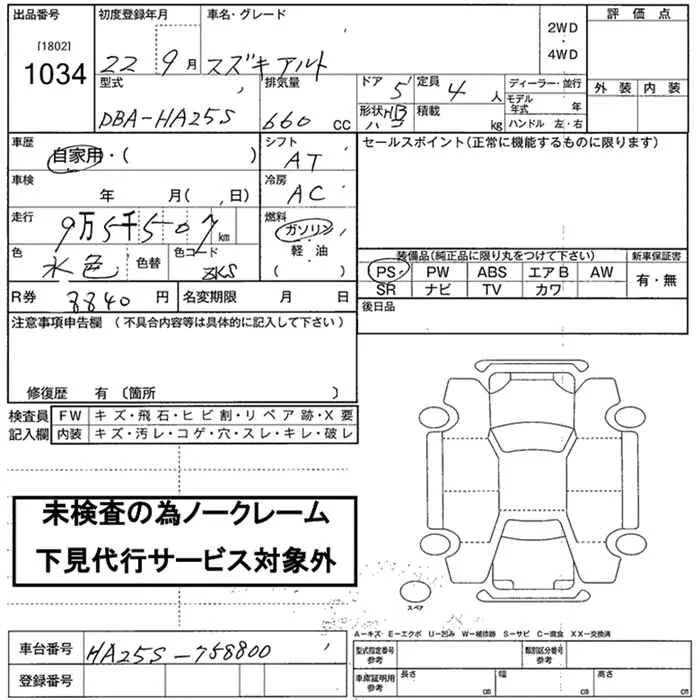 出品番号 初度登録年月 車名・グレード 評価点
[1802]
1034
22 9月 スズキアルト
2WD
・
4WD
型式 排気量 ドア 5 定員 4人 ディーラー・並行 外装 内装
DBA-HA25S 660CC
形状 HB 積載 kg モデル年式 年
ハンドル 左・右
車歴 自家用・( ) シフト AT セールスポイント(正常に機能するものに限ります)
車検 年 月( 、日) 冷房 AC
走行 9万5千507km 燃料 ガソリン
軽・油
( )
色 水色 色替 色コード ZKS
装備品(純正品に限り丸をつけて下さい) 新車保証書
PS PW ABS エアB AW 有・無
SR ナビ TV カワ
R券 8840円 名変期限 月 日
後日品
注意事項申告欄(不具合内容等は具体的に記入して下さい)
修復歴 有〔箇所 〕
検査員 FW キズ・飛石・ヒビ割・リペア跡・X要
記入欄 内装 キズ・汚レ・コゲ・穴・スレ・キレ・破レ
未検査の為ノークレーム
下見代行サービス対象外
スペア
A-キズ E-エクボ U-凹み W-補修跡 S-サビ C-腐食 XX-交換済
車台番号 HA25S-758800
型式指定番号 参考 類別区分番号 参考
登録番号
車庫証明用 参考 長さ cm 幅 cm 高さ cm